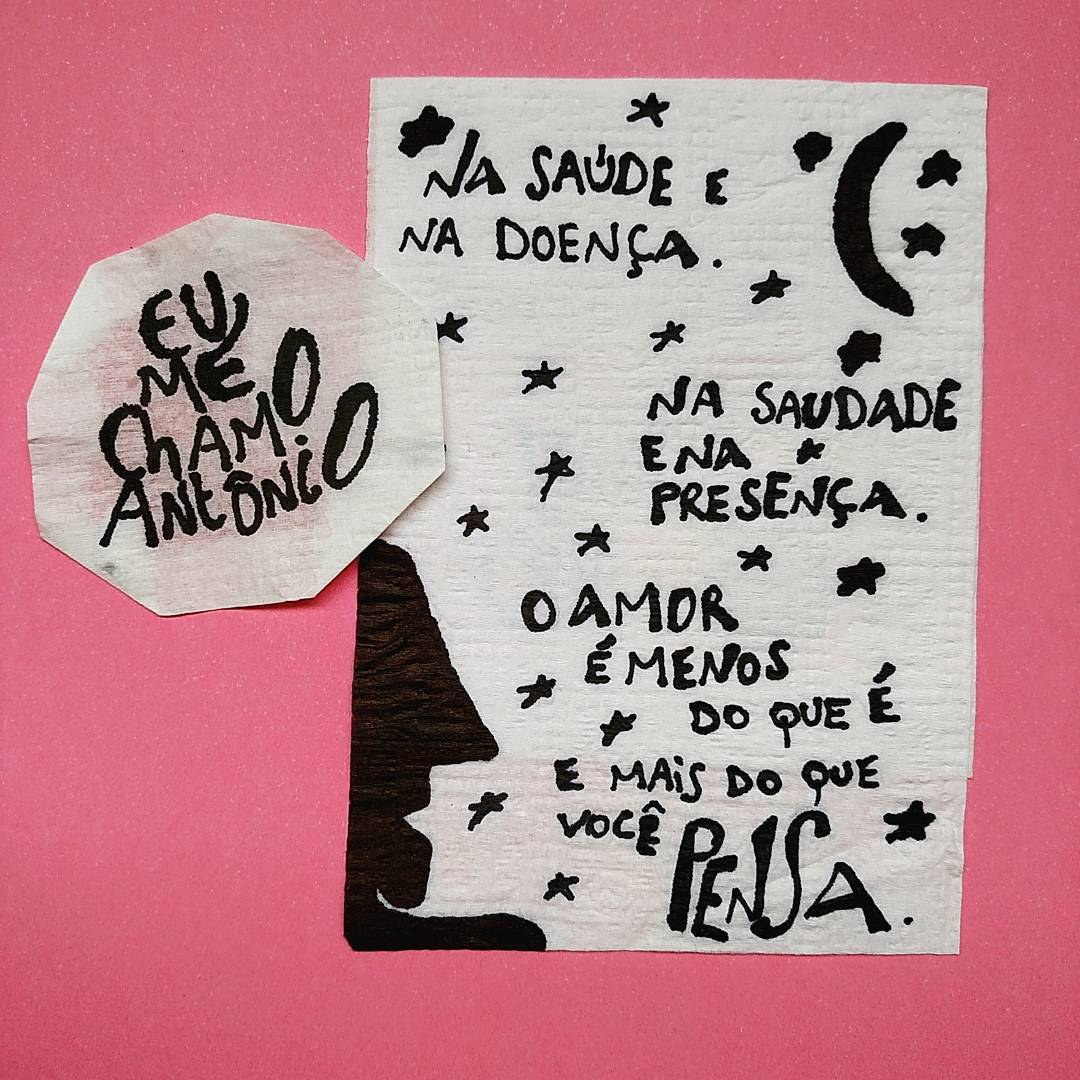 EU
ME
ChAMO
ANtÔNiO
NA SAÚDE E
NA DOENÇA.
NA SAUDADE
E NA
PRESENÇA.
O AMOR
É MENOS
DO QUE É
E MAiS DO QUE
VOCÊ PENSA.